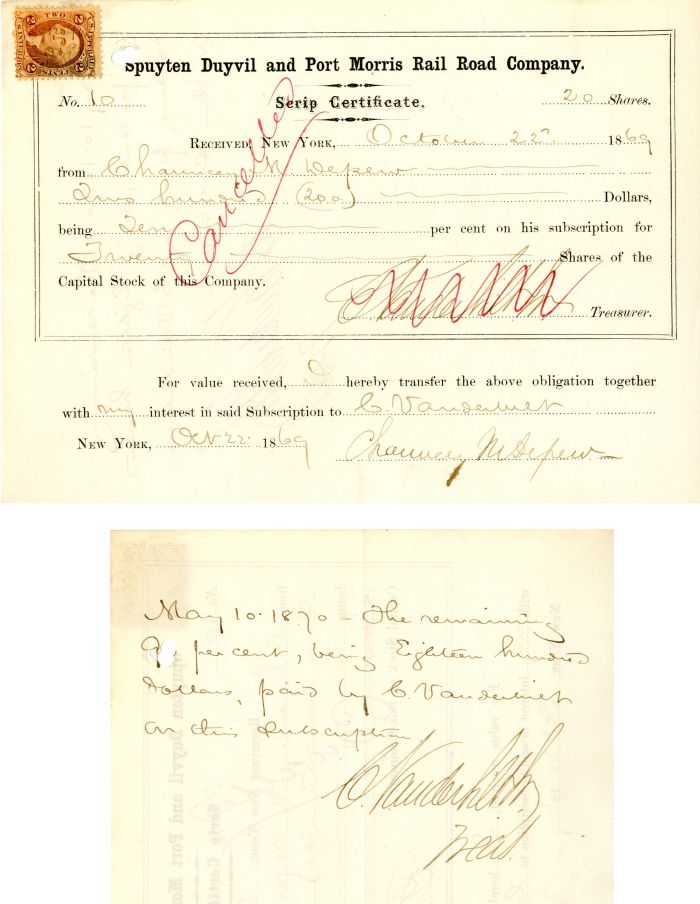 TWO
2 2
CENTS
Spuyten Duyvil and Port Morris Rail Road Company.
No. 10 Scrip Certificate. 20 Shares.
RECEIVED, NEW YORK, October 22 1869
from Chauncey M Depew
Two hundred (200) Dollars,
being Ten per cent on his subscription for
Twenty Shares of the
Capital Stock of this Company.
Cancelled
Treasurer.
For value received, I hereby transfer the above obligation together
with my interest in said Subscription to C. Vanderbilt
NEW YORK, Oct 22 1869 Chauncey M Depew
May 10. 1870 The remaining
90 per cent, being Eighteen hundred
Dollars, paid by C. Vanderbilt
on this subscription
C. Vanderbilt Jr
Treas.